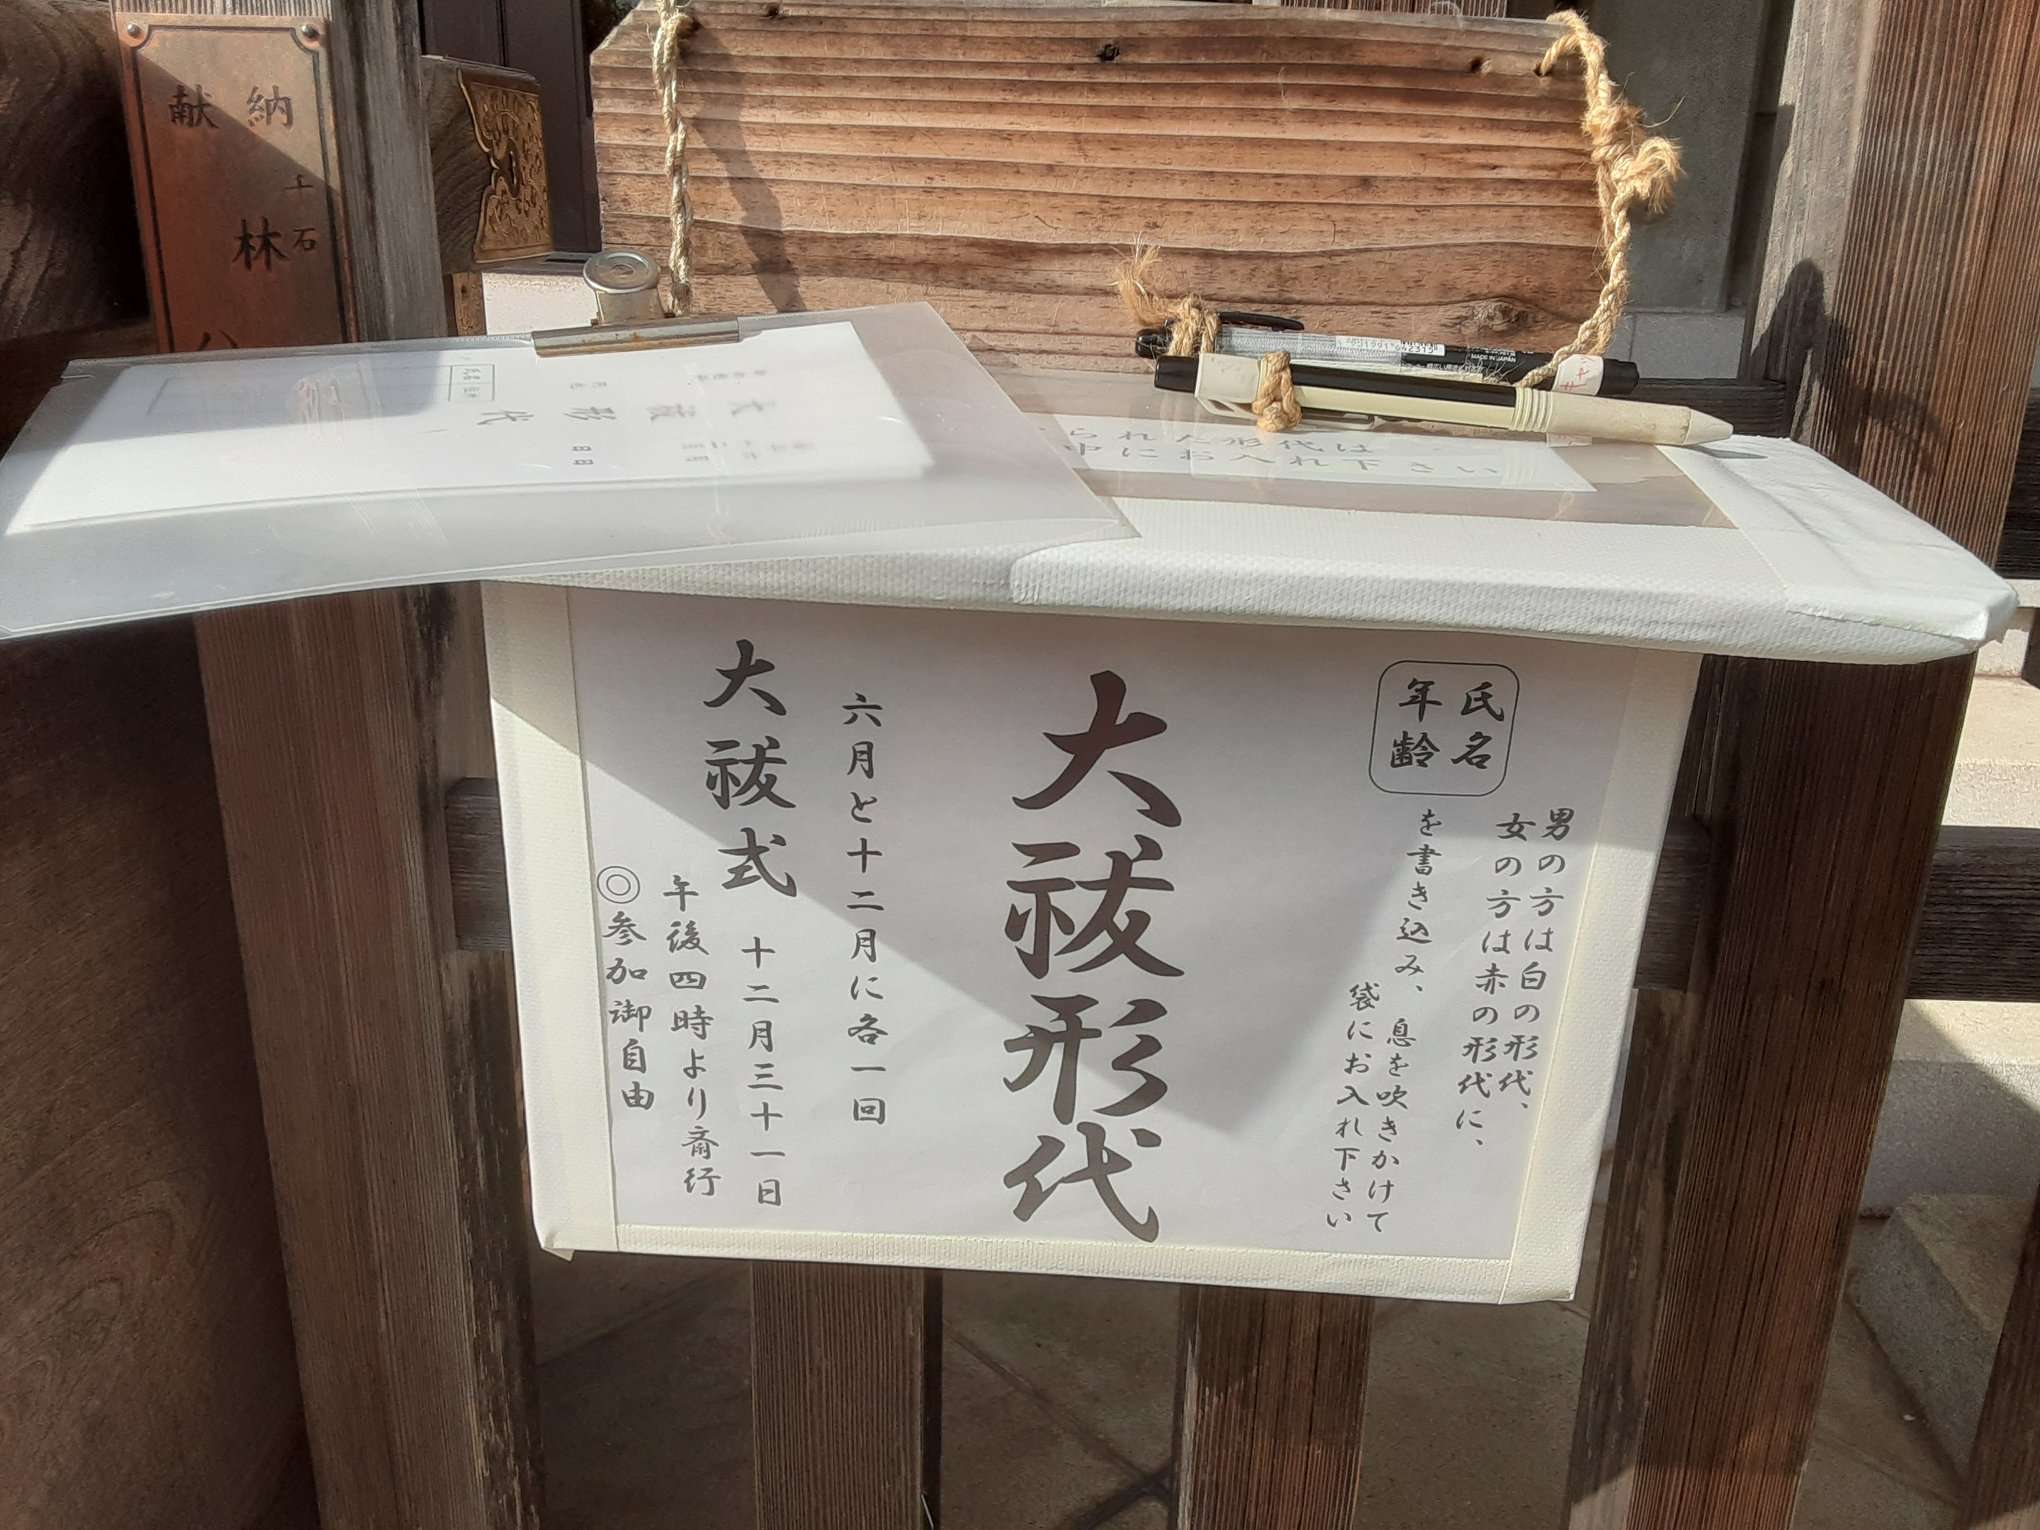 納
献
十石
林
られた形代は
中にお入れ下さい
大祓
形代
MADE IN JAPAN
男の方は白の形代、
女の方は赤の形代に、
氏名
年齢
を書き込み、息を吹きかけて
袋にお入れ下さい
大祓形代
六月と十二月に各一回
大祓式 十二月三十一日
午後四時より斎行
◎参加御自由